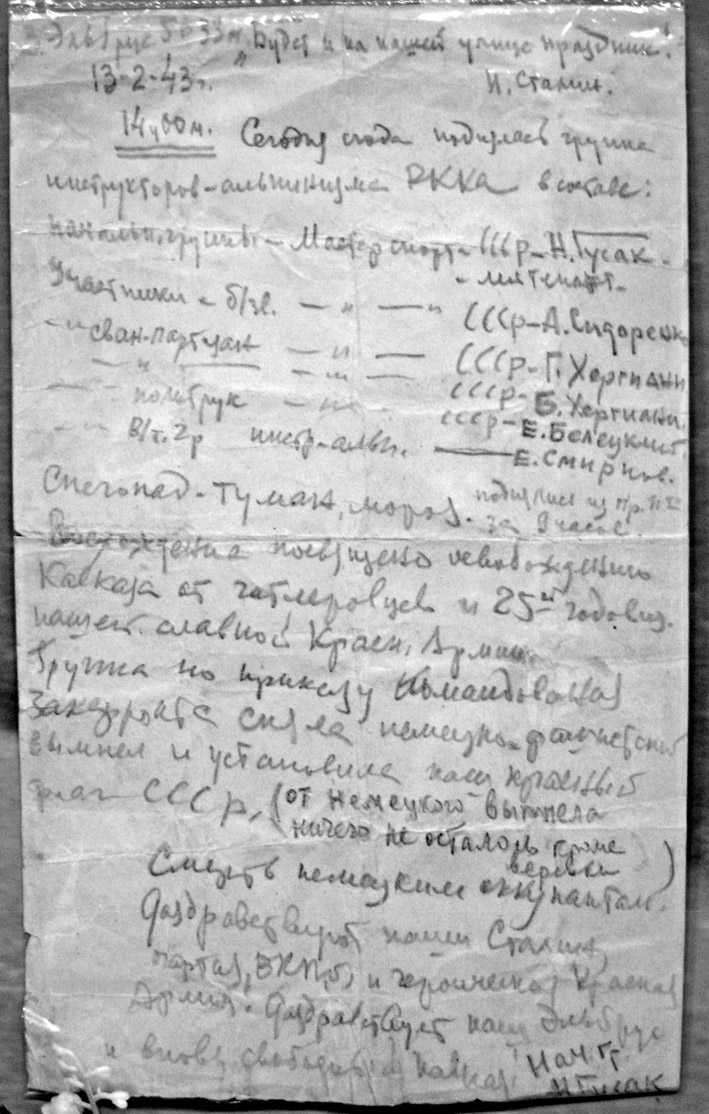 Эльбрус 5633м. "Будет и на нашей улице праздник!
13-2-43г. И. Сталин.
14ч00м. Сегодня сюда поднялась группа
инструкторов-альпинизма РККА в составе:
начальн. группы - Мастер спорта СССР - Н. Гусак -
- лейтенант -
Участники - б/зв. — " — " СССР - А. Сидоренко
-"- сван-партизан — " — СССР - Г. Хергиани
— " — — " — СССР - Б. Хергиани.
политрук — " — СССР - Е. Белецкий
В/т. 2р инстр-альп. — Е. Смирнов.
Снегопад - туман, мороз. поднялись из пр. 11
за 9 часов.
Восхождение посвящено освобождению
Кавказа от гитлеровцев и 25й годовщ.
нашей славной Красн. Армии.
Группа по приказу командования
Закфронта сняла немецко-фашистский
вымпел и установила наш красный
флаг СССР, (от немецкого вымпела
ничего не осталось кроме
веревки)
Смерть немецким оккупантам.
Да здравствует наш Сталин,
партия, ВКП(б) и героическая Красная
Армия. Да здравствует наш Эльбрус
и вновь свободный Кавказ! Нач. гр
Н Гусак